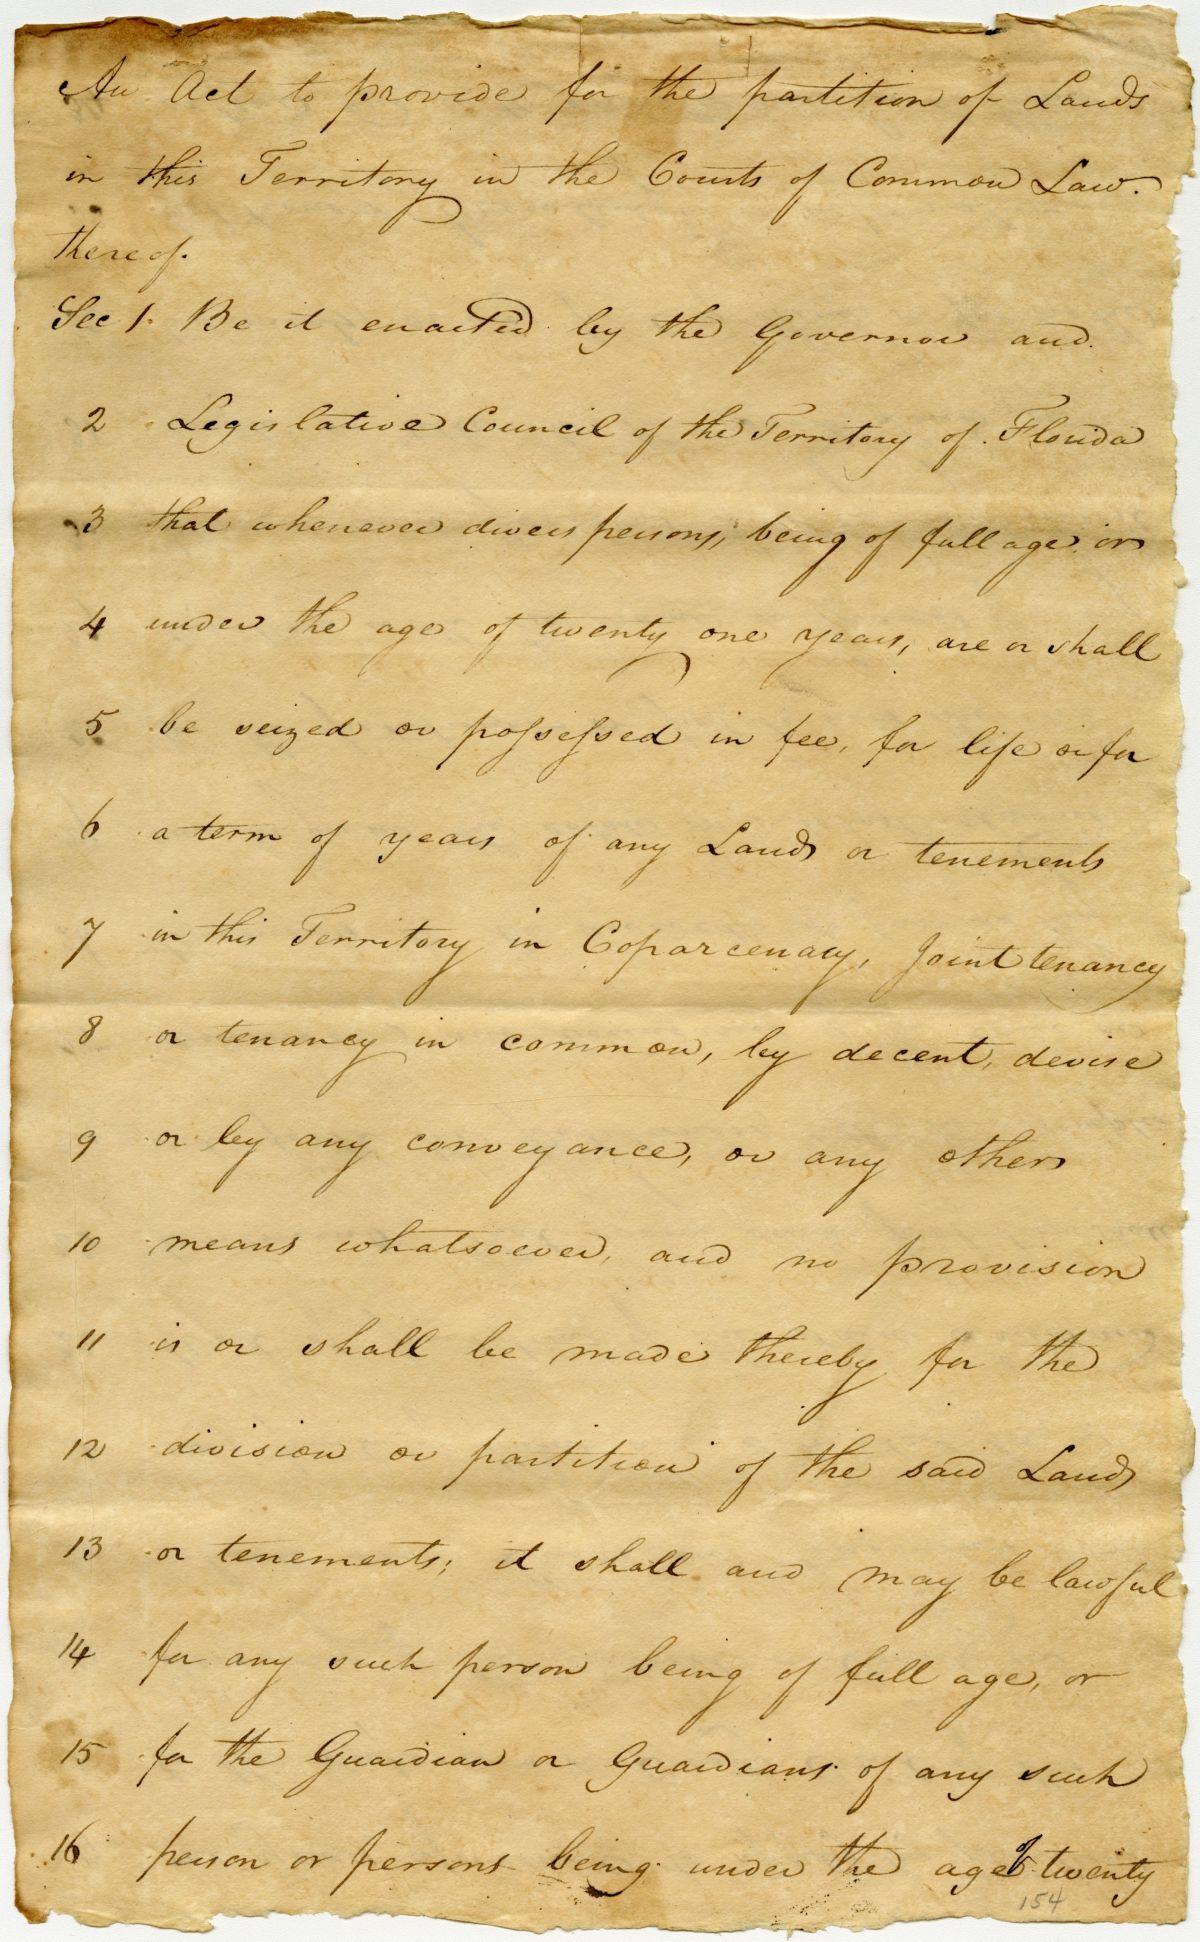 An Act to provide for the partition of Lands
in this Territory in the Courts of Common Law.
thereof.
Sec 1. Be it enacted by the Governor and
2 Legislative Council of the Territory of Florida
3 that whenever divers persons, being of full age or
4 under the age of twenty one years, are or shall
5 be seized or possessed in fee, for life or for
6 a term of years of any Lands or tenements
7 in this Territory in Coparcenacy, Joint tenancy
8 or tenancy in common, by decent, devise
9 or by any conveyance, or any others
10 means whatsoever, and no provision
11 is or shall be made thereby for the
12 division or partition of the said Lands
13 or tenements; it shall and may be lawful
14 for any such person being of full age, or
15 for the Guardian or Guardians of any such
16 person or persons being under the age of twenty
154